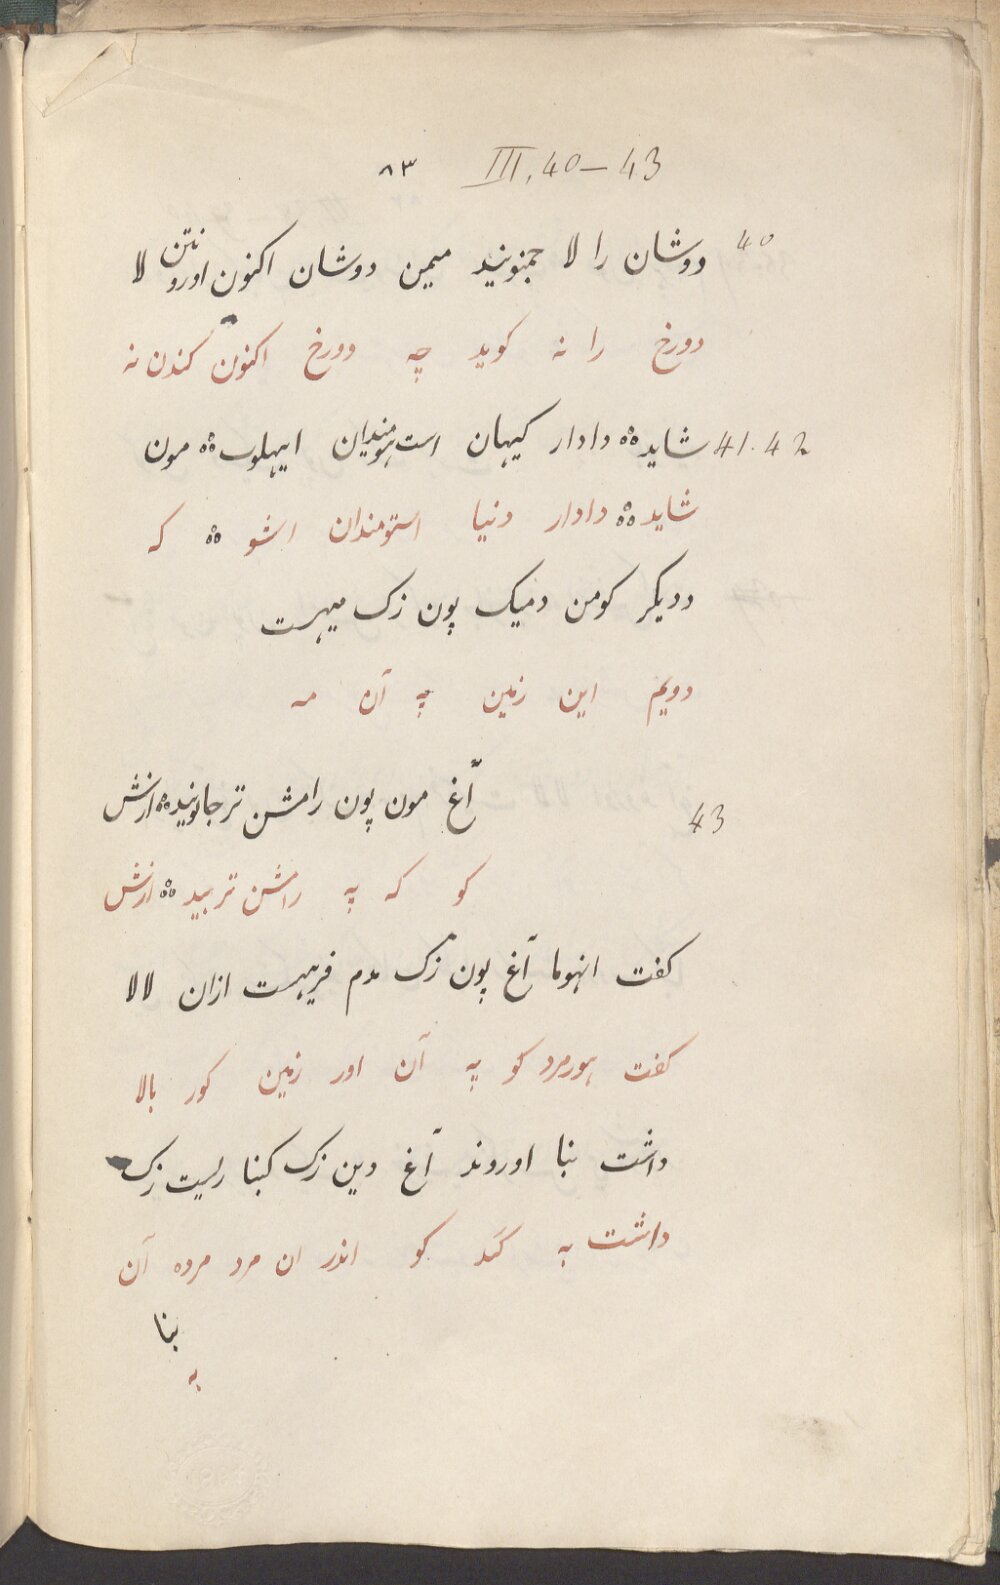 ٨٣ III, 40–43
40 دوشان را لا جمنونید میمن دوشان اکنون اورونتن لا
دورخ را نه کوید چه دورخ اکنون کندن نه
41.42 شاید ۀۀ دادار کیهان است هومندان ایهلوب ۀۀ مون
شاید ۀۀ دادار دنیا استومندان اشو ۀۀ که
ددیکر کومن دمیک پون زک میهست
دویم این زمین په آن مه
43 آغ مون پون رامشن ترجانونید ۀۀ ازش
کو که په رامشن تربید ۀۀ ازش
کفت انهوما آغ پون زک مدم فریهست ازان لالا
کفت هورمرد کو په آن اور زمین کور بالا
داشت بنا اوروند آغ دین زک کبنا رلیت زک
داشت به کند کو اندر ان مرد مرده آن
بنا
به